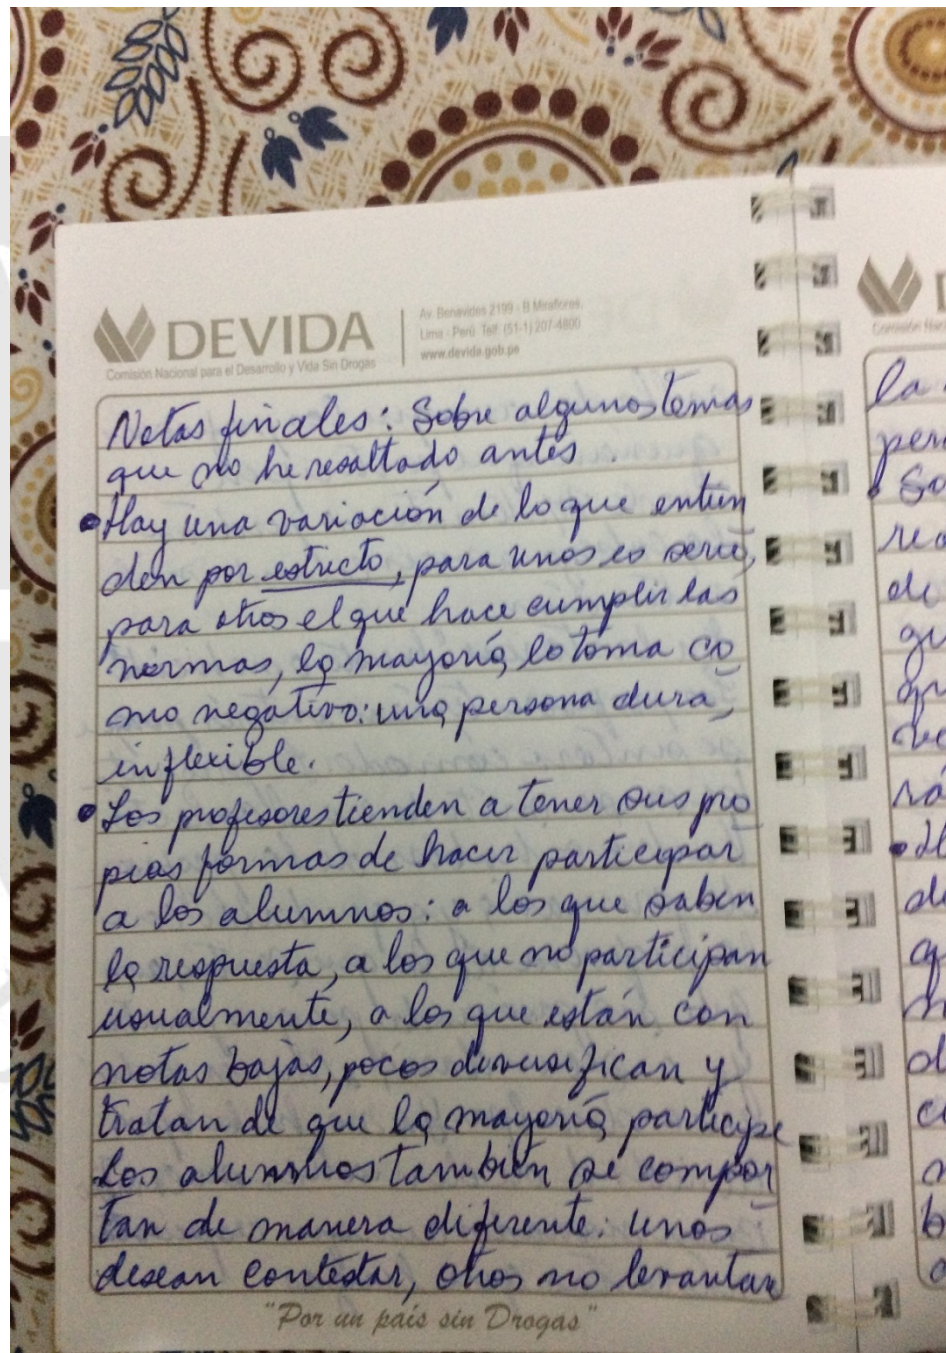 DEVIDA
Comisión Nacional para el Desarrollo y Vida Sin Drogas
Av. Benavides 2199 - B Miraflores.
Lima - Perú. Telf: (51-1) 207-4800
www.devida.gob.pe
Notas finales: Sobre algunos temas
que no he resaltado antes.
• Hay una variación de lo que entien
den por estricto, para unos es serio,
para otros el que hace cumplir las
normas, la mayoría lo toma co
mo negativo: una persona dura,
inflexible.
• Los profesores tienden a tener sus pro
pias formas de hacer participar
a los alumnos: a los que saben
la respuesta, a los que no participan
usualmente, a los que están con
notas bajas, pocos diversifican y
tratan de que la mayoría participe
Los alumnos también se compor
tan de manera diferente: unos
desean contestar, otros no levantan
"Por un país sin Drogas"
la